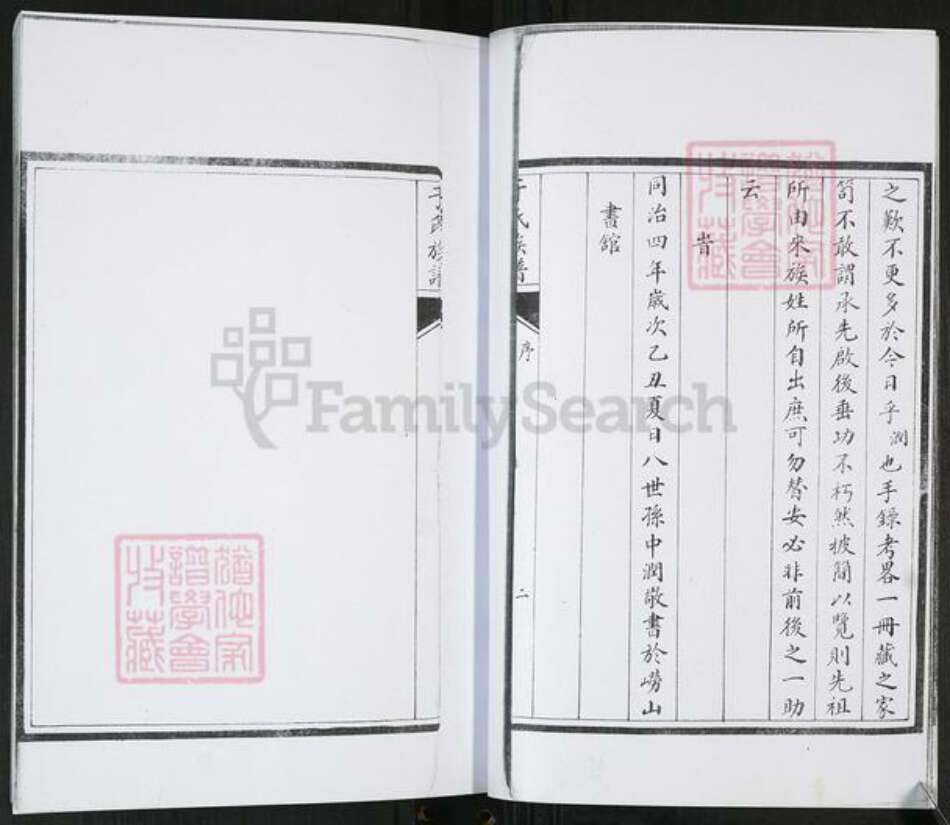 之歎不更多於今日乎潤也手錄考畧一冊藏之家
笥不敢謂承先啟後垂功不朽然披簡以覽則先祖
所由來族姓所自出庶可勿替安必非前後之一助
云
旹
同治四年歲次乙丑夏日八世孫中潤敬書於嶗山
書館
于氏族譜
序
二
于氏族譜
FamilySearch